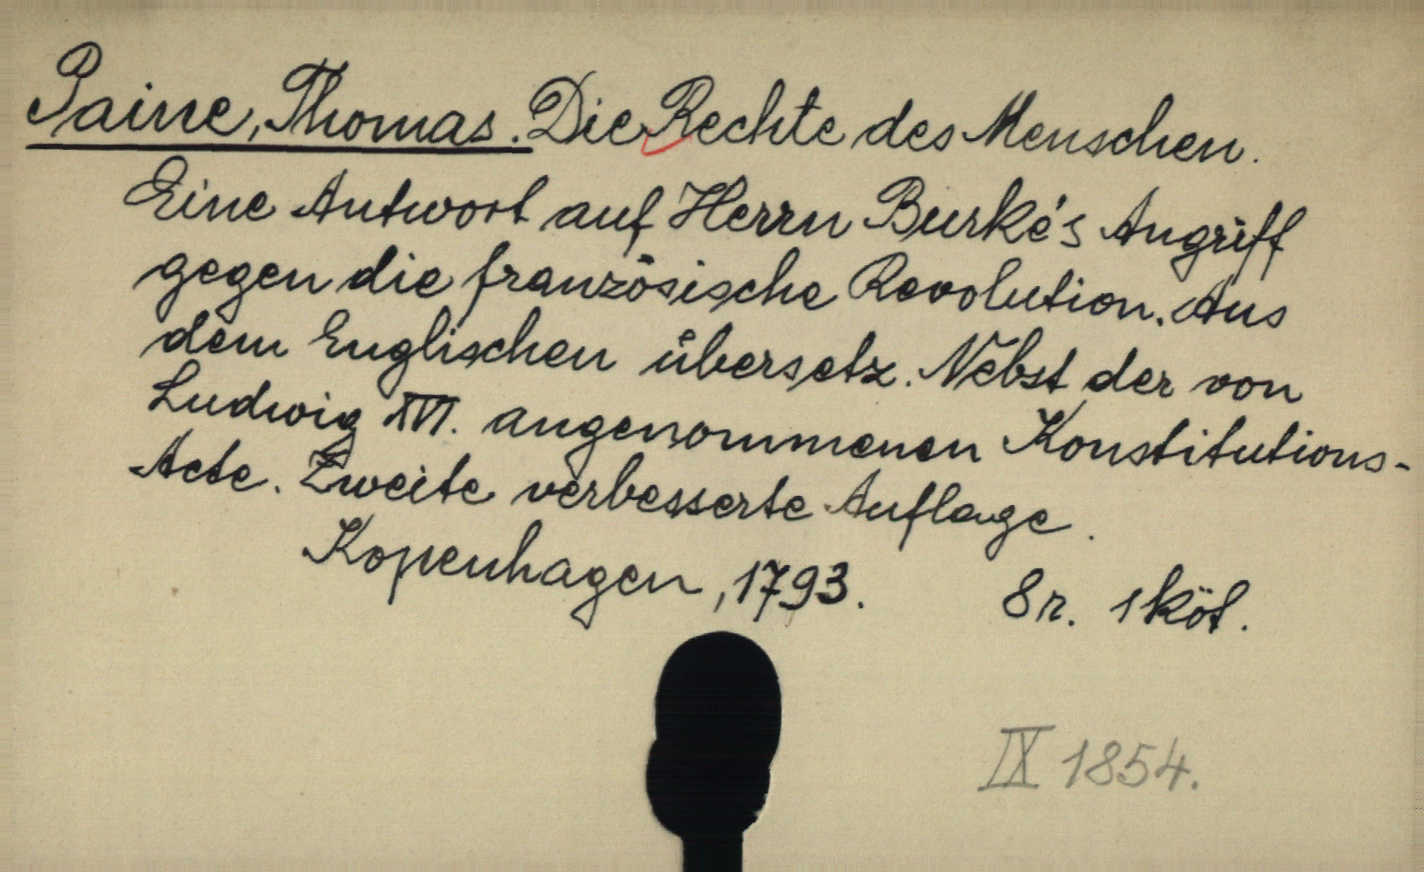 Paine, Thomas. Die Rechte des Menschen.
Eine Antwort auf Herrn Burke's Angriff
gegen die französische Revolution. Aus
dem Englischen übersetz. Nebst der von
Ludwig XVI. angenommenen Konstitutions-
Acte. Zweite verbesserte Auflage.
Kopenhagen, 1793. 8r. 1 köt.
IX 1854.